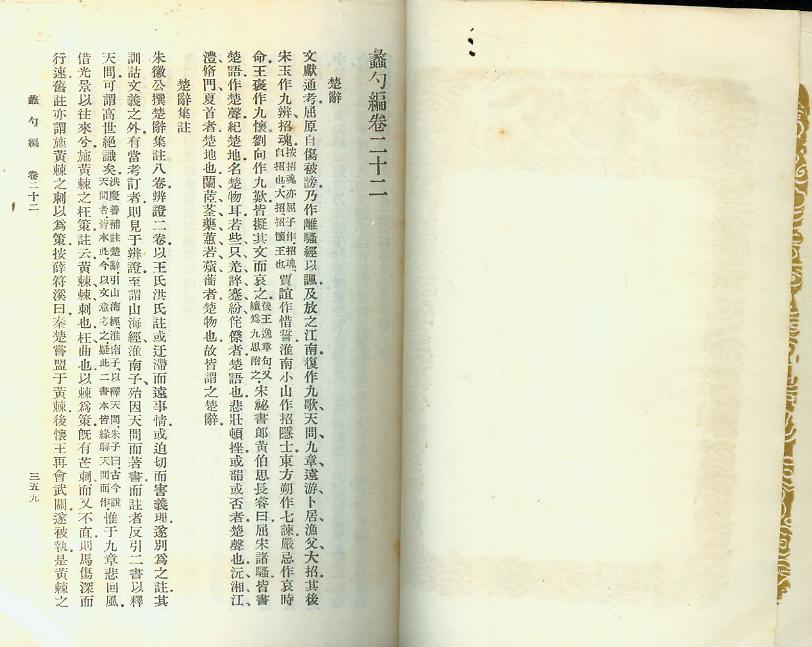 蠡勺編卷二十二
楚辭
文獻通考屈原自傷被謗乃作離騷經以諷及放之江南復作九歌天問九章遠游卜居漁父大招其後
宋玉作九辨招魂按招魂亦屈子作招魂自招也大招招懷王也賈誼作惜誓淮南小山作招隱士東方朔作七諫嚴忌作哀時
命王褒作九懷劉向作九歎皆擬其文而哀之後王逸章句又續為九思附之宋祕書郎黃伯思長睿曰屈宋諸騷皆書
楚語作楚聲紀楚地名楚物耳若些只羌誶蹇紛侘傺者楚語也悲壯頓挫或韻或否者楚聲也沅湘江
澧脩門夏首者楚地也蘭茝荃藥蕙若蘋蘅者楚物也故皆謂之楚辭
楚辭集註
朱徽公撰楚辭集註八卷辨證二卷以王氏洪氏註或迂滯而遠事情或迫切而害義理遂別為之註其
訓詁文義之外有當考訂者則見于辨證至謂山海經淮南子殆因天問而著書而註者反引二書以釋
天問可謂高世絕識矣洪慶善補註楚辭引山海經淮南子以釋天問朱子曰古今說天問者皆本此今以文意考之疑此二書本皆緣解天問而作惟于九章悲回風
借光景以往來兮施黃棘之枉策註云黃棘棘刺也枉曲也以棘為策既有芒刺而又不直則馬傷深而
行速舊註亦謂施黃棘之刺以為策按薛符溪曰秦楚嘗盟于黃棘後懷王再會武關遂被執是黃棘之
蠡勺編 卷二十二
三五九